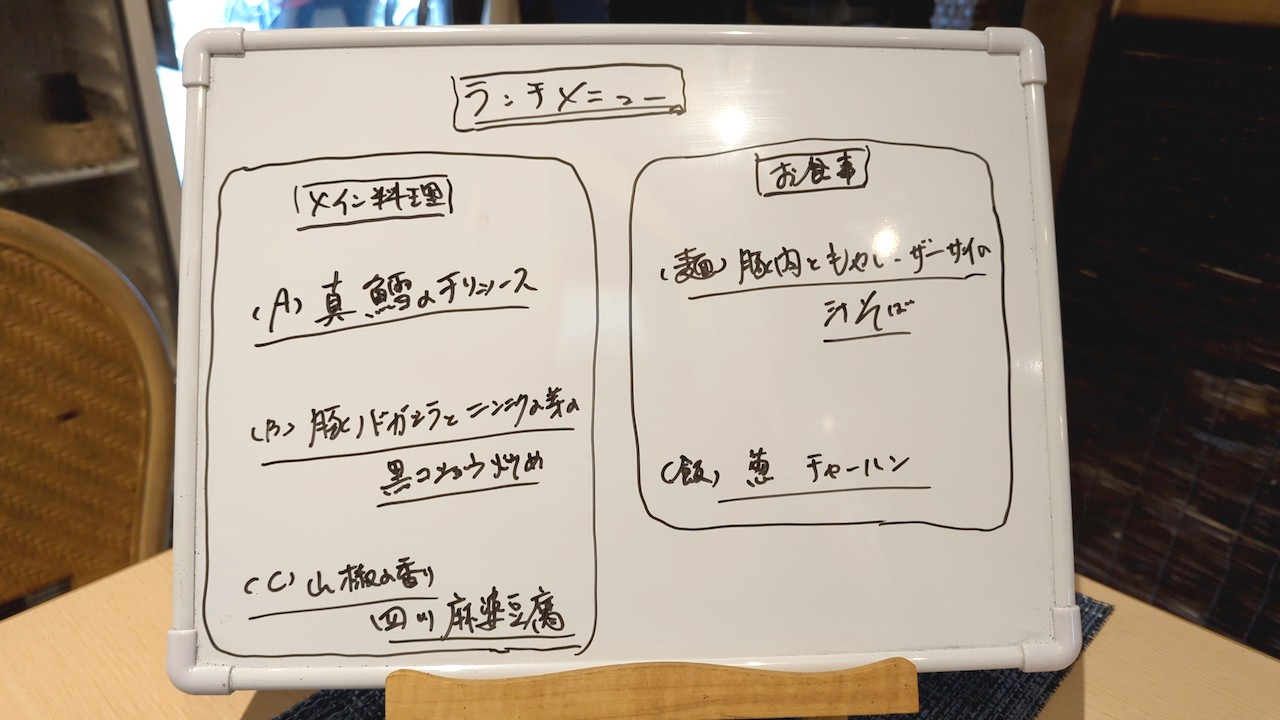 ランチメニュー
メイン料理
(A) 真鱈のチリソース
(B) 豚バトガシラとニンニクの芽の
黒コショウ炒め
(C) 山椒の香り
四川麻婆豆腐
お食事
(麺) 豚肉ともやし・ザーサイの
汁そば
(飯) 葱 チャーハン